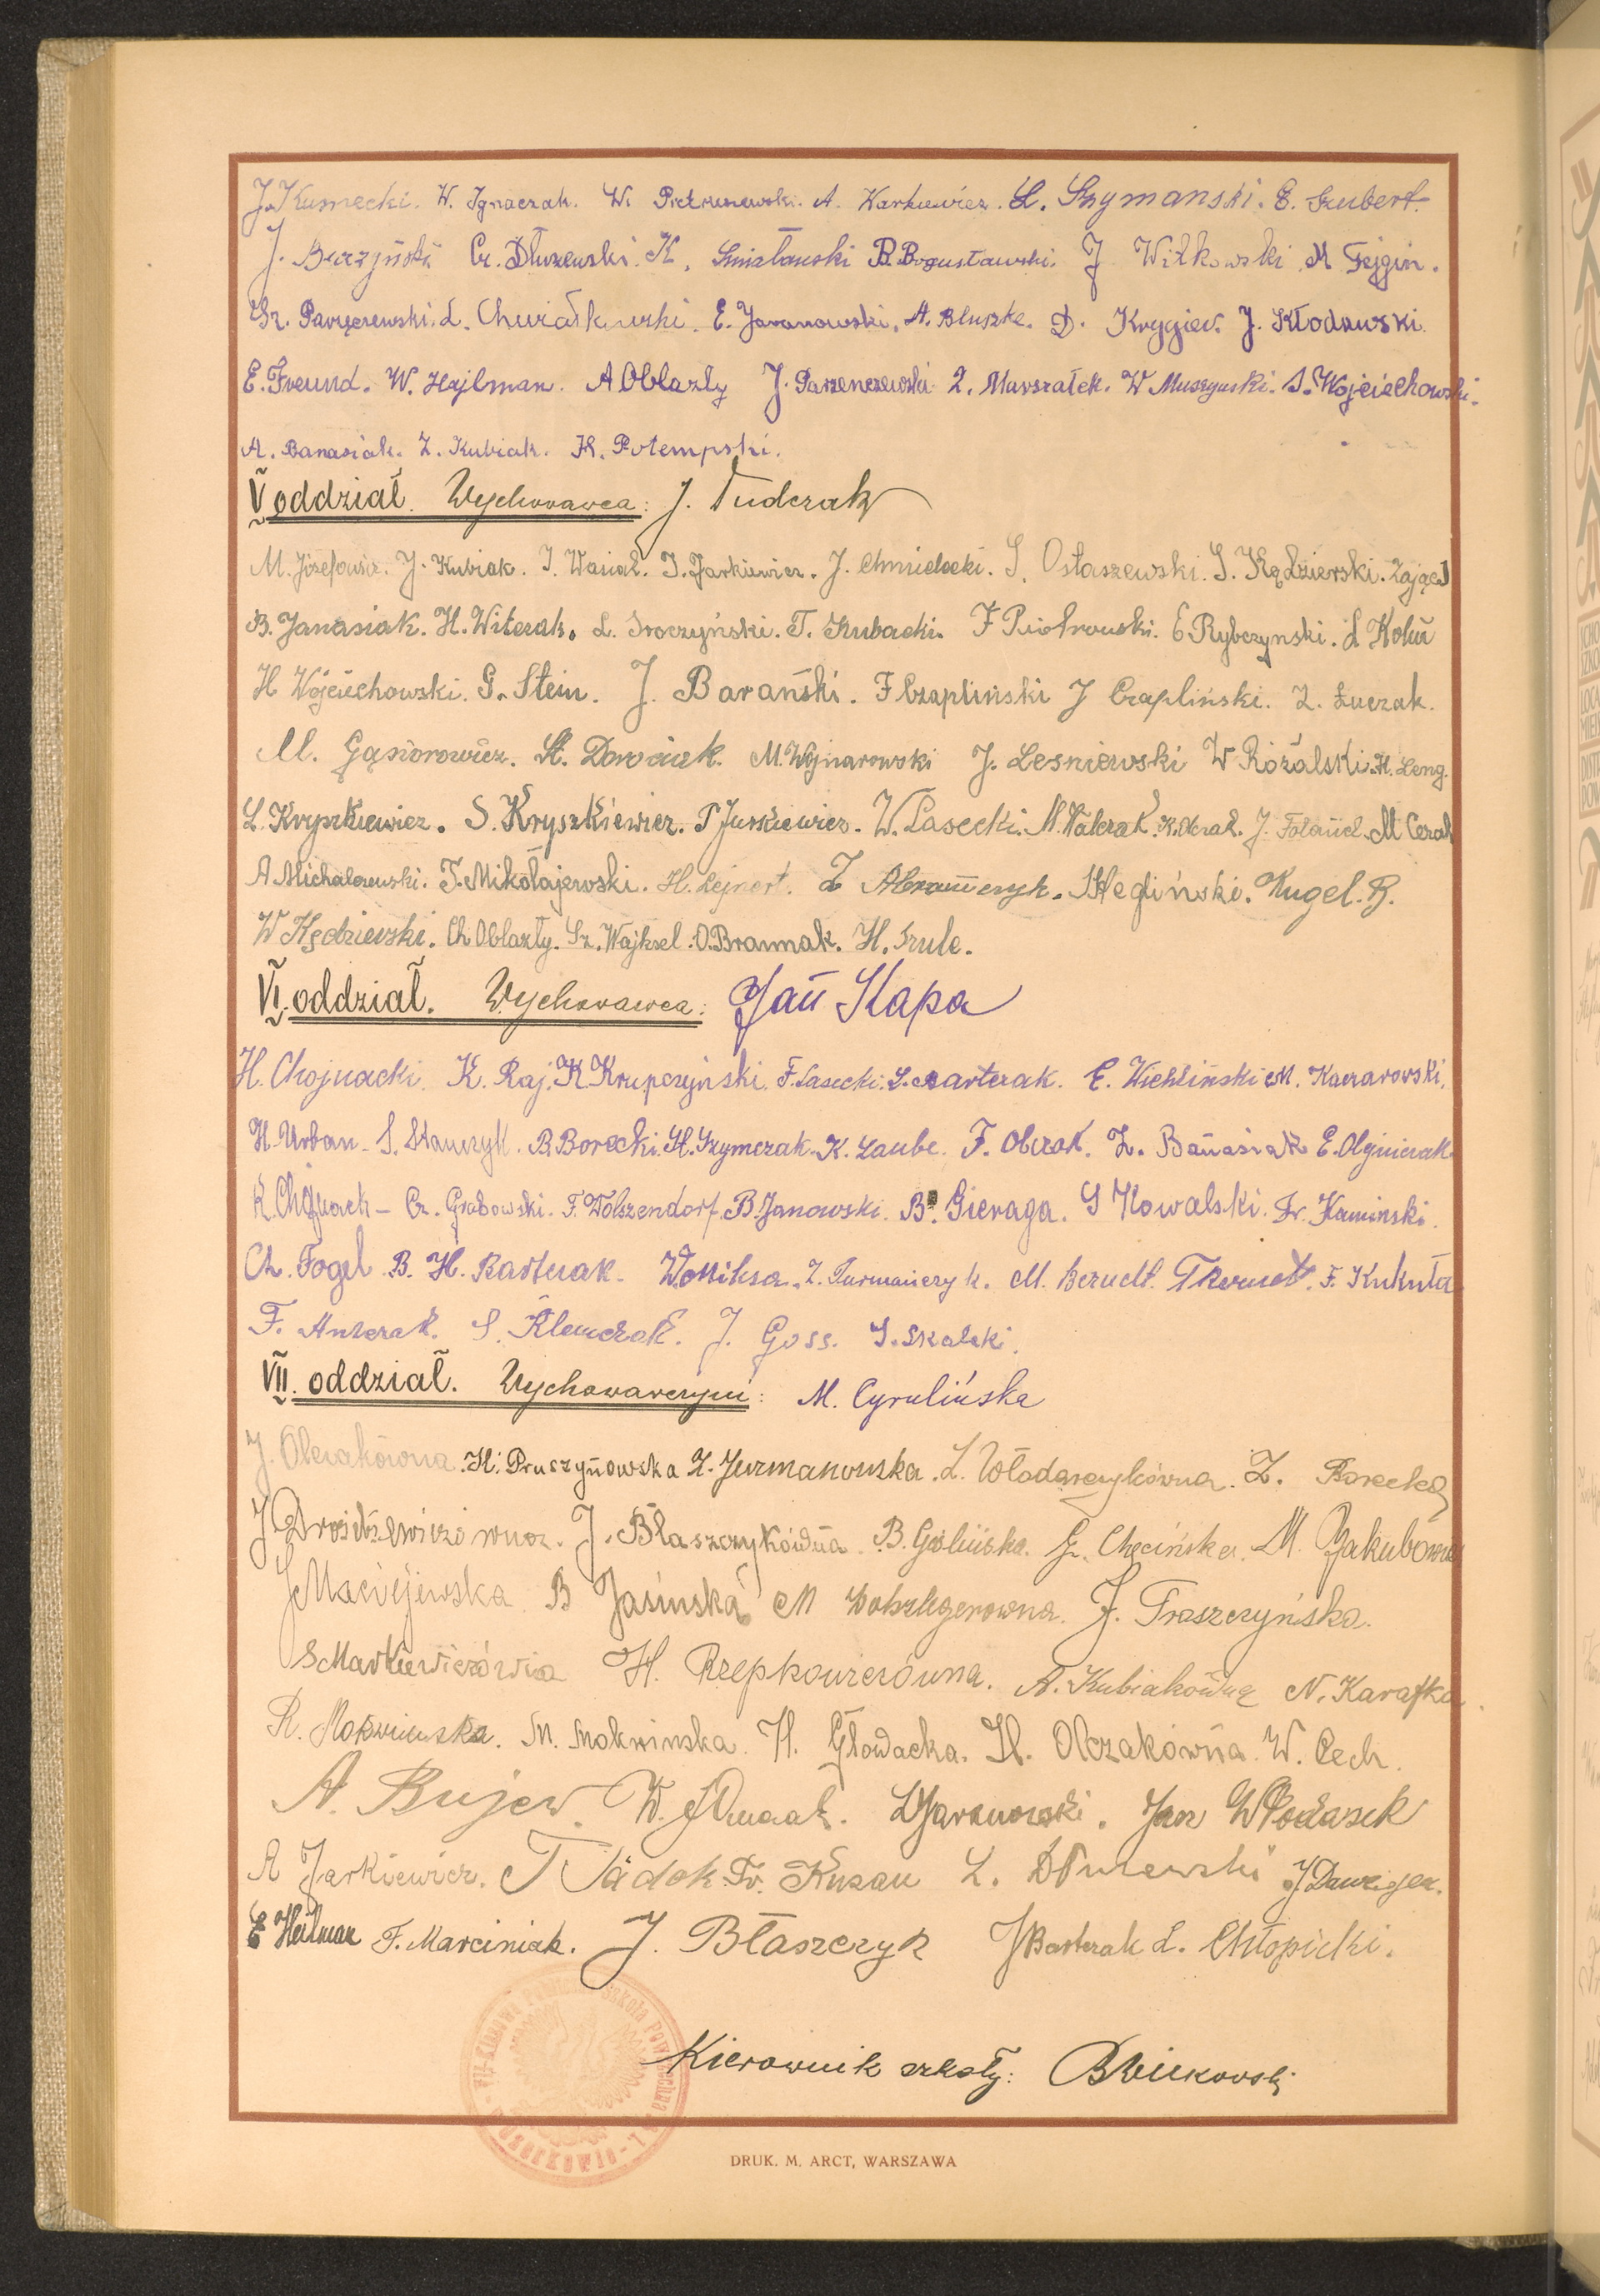 J. Kusnecki. W. Ignaczak. W. Pietruszewski. A. Warkiewicz. L. Szymanski. E. Szubert.
J. Burzyński Cz. Dłużewski. K. B. Bogusławski. J. Witkowski M Fejgin.
Sz. Parzęczewski. L. Chwiałkowski. E. Jaranowski. A. Bluszke. D. Krygier. J. Kłodawski.
E. Freund. W. Hajlman. A Oblazły J. Parzenczewski Z. Marszałek. W Muszyuski. S. Wojciechowski.
A. Banasiak. Z. Kubiak. H. Potempski.
V oddział. Wychowawca: J. Tudczak
M. Józefowicz. J. Kubiak. J. Wasiak. I. Jarkiewicz. J. Chmielecki. S. Ostaszewski. S. Kędzierski. Zając J
B. Janasiak. H. Witczak. L. Soczyński. T. Kubacki. F Piotrowski. E Rybczynski. L
H Wojciechowski. G. Stein. J. Barański. F Czapliński J Czapliński. Z. Łuczak.
M. Gąsiorowicz. St. M. Wojnarowski J. Lesniewski W Różalski. H. Leng.
L. Kryszkiewicz. S. Kryszkiewicz. T Jurkiewicz. W. Lasecki. M. Walczak. K. Olczak. J. Foland. M Cerak
A Michalewski. T. Mikołajewski. H. Lejnert. Z Abramczyk. Kugel. B.
W Kędzierski. Ch Oblazły. Sz. Wajksel. O. Bramnak. H. Szulc.
VI. oddział. Wychowawca: Jan Kapa
H. Chojnacki. K. Raj. K Krupczyński. F. Lasecki. L. Bartczak. E. Wichliński M. Kaczarowski.
H. Urban. S. Stanczyk. B. Borecki. H. Szymczak. K. Laube. F. Olczak. Z. Banasiak E. Olejniczak
K. Chojnack- Cz. Grabowski. F. Wolszendorf. B. Janowski. B. Gieraga. S Kowalski. Fr. Kaminski.
Ch. Fogel. B. H. Bartczak. Z. Furmańczyk. M. Berndt. T Berndt. F. Kukuła
F. Antczak. S. Klemczak. J. Goss. S. Skalski.
VII. oddział. Wychowawczyni: M. Cyrulińska
J. Olczakówna. H. Pruszynowska Z. Jurmanowska. L. Włodarczykówna. Z. Borecka
J Drożdżewiczówna. J. Błaszczykówna. B. Golińska. G. Chęcińska. M. Jakubowna
J Maciejewska B Jasinska M Wolszlegerowna. J. Traszczyńska.
S Markiewiczówna H. Rzepkowiczówna. A. Kubiakówna N. Karafka.
R. Mokwinska. M. Mokwinska. H. Głowacka. H. Olczakówna. W. Cech.
A. Bujew. W. L Jaranowski. Jan Włodarek
A Jarkiewicz. T Fr. Kuzan L. Dłużewski J Dancigier.
E Heilman F. Marciniak. J. Błaszczyk J Bartczak L. Chłopicki.
Kierownik szkoły: B Witkowski
DRUK. M. ARCT, WARSZAWA